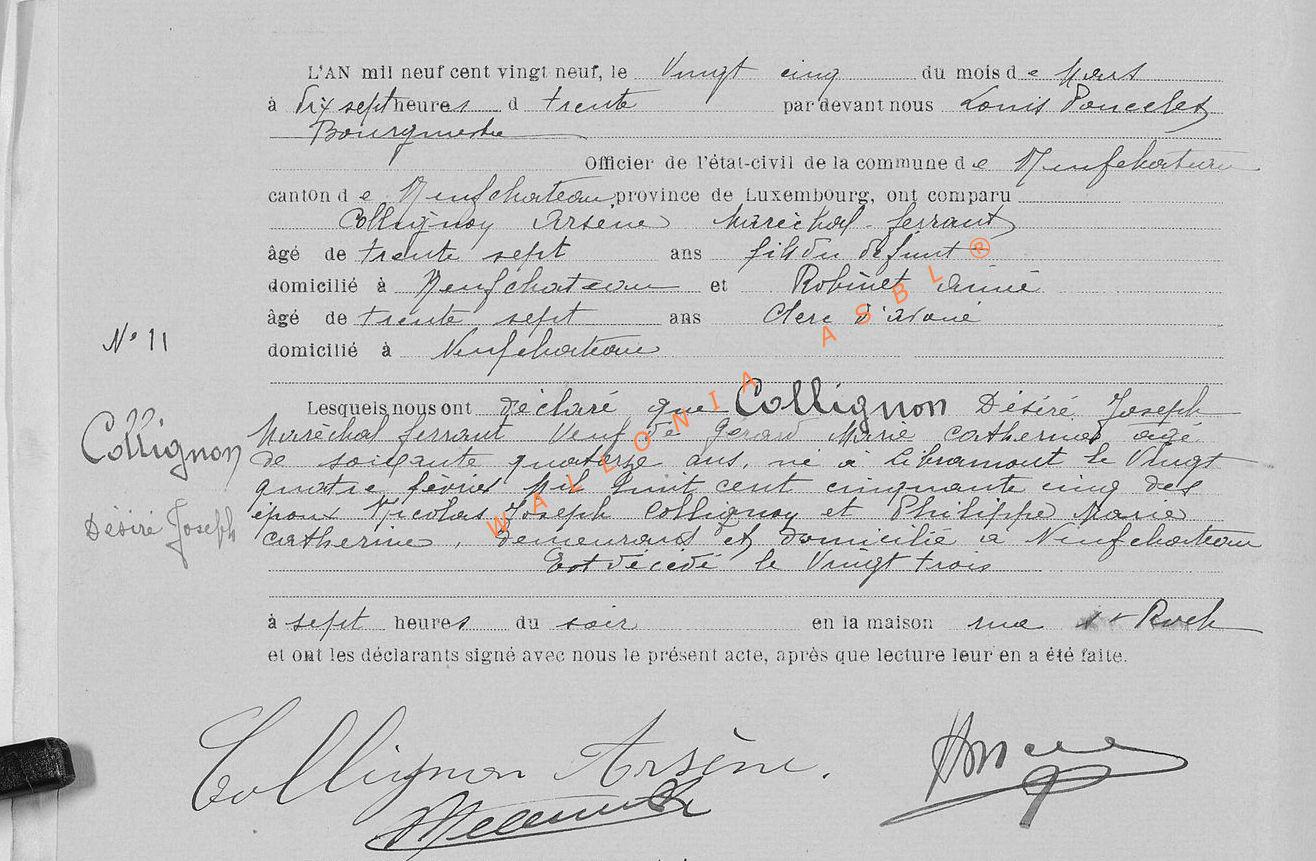 L'AN mil neuf cent vingt neuf, le Vingt cinq du mois de Mars
à Dix sept heures d trente par devant nous Louis Poncelet
Bourgmestre
Officier de l'état-civil de la commune de Neufchateau
canton de Neufchateau province de Luxembourg, ont comparu
Collignon Arsène Maréchal-ferrant
âgé de trente sept ans fils du défunt
domicilié à Neufchateau et Robinet Aimé
âgé de trente sept ans Clerc d'avoué
N° 11
domicilié à Neufchateau
Lesquels nous ont déclaré que Collignon Désiré Joseph
Collignon
Désiré Joseph
Maréchal ferrant Veuf de Gerard Marie Catherine, âgé
de soixante quatorze ans, né à Libramont le Vingt
quatre fevrier Mil huit cent cinquante cinq des
époux Nicolas Joseph Collignon et Philippe Marie
Catherine, demeurant et domicilié à Neufchateau
Est décédé le Vingt trois
à sept heures du soir en la maison rue St Roch
et ont les déclarants signé avec nous le présent acte, après que lecture leur en a été faite.
Collignon Arsène.
WALLONIA ASBL ®